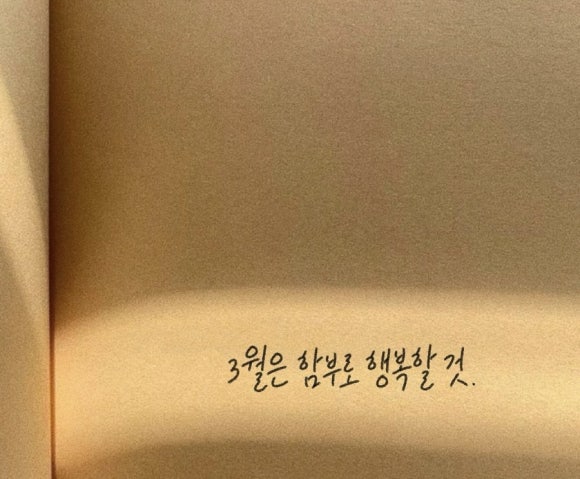 3월은 함부로 행복할 것.